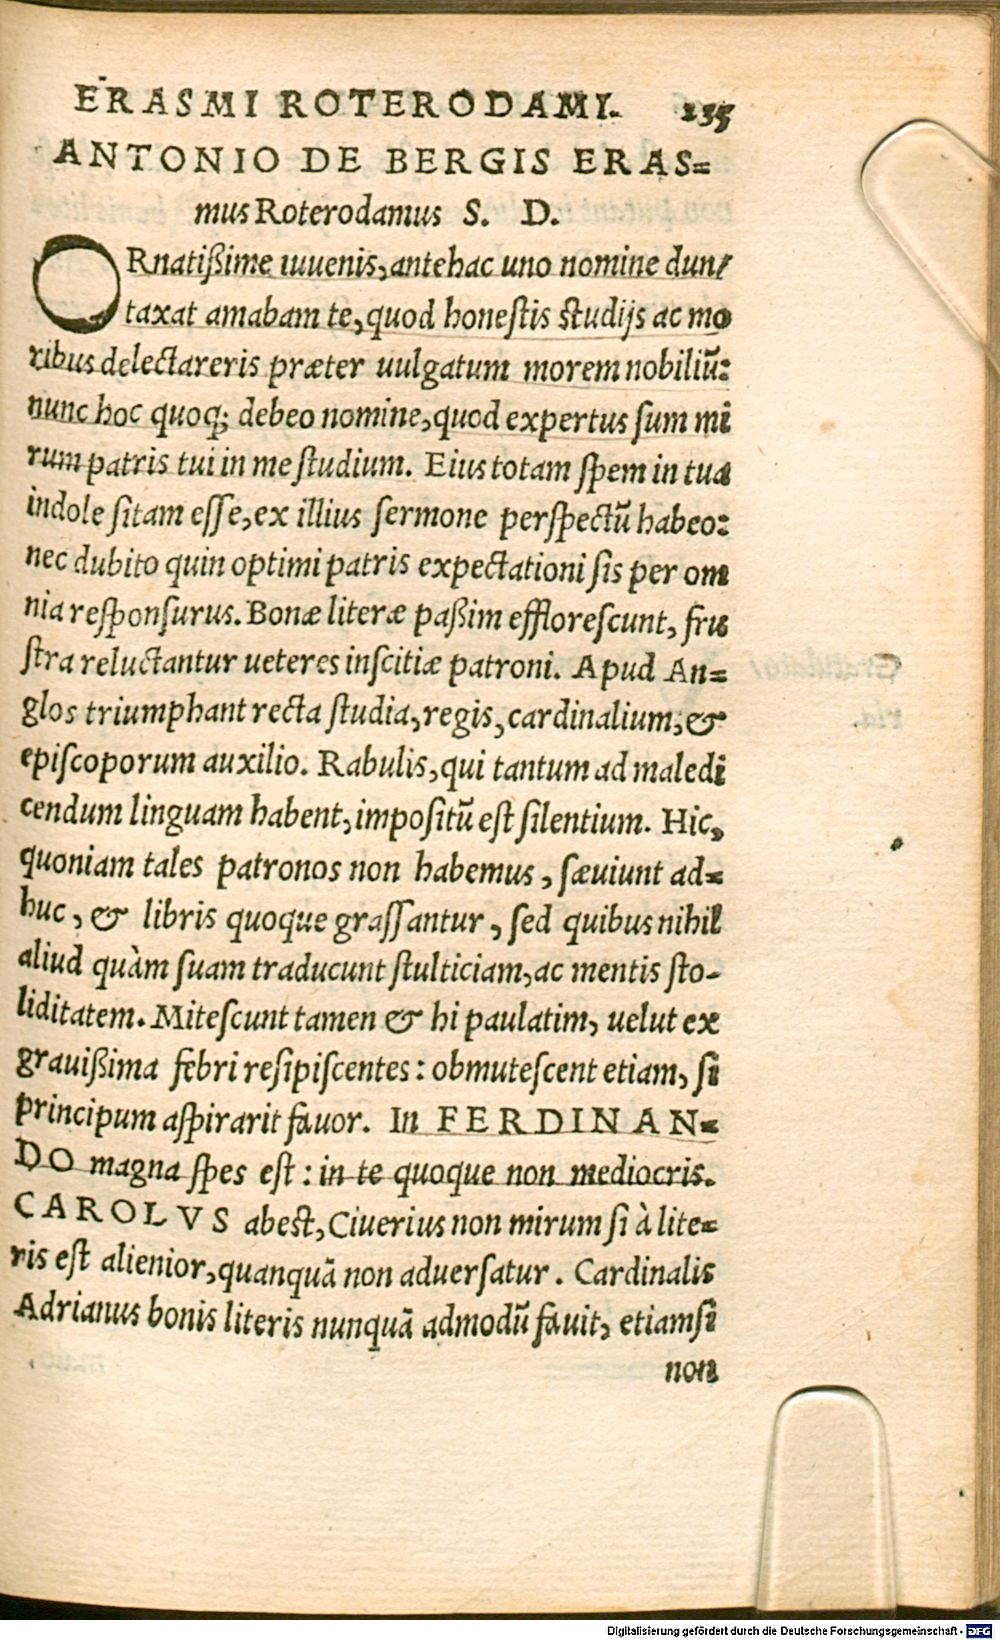 ERASMI ROTERODAMI. 235
ANTONIO DE BERGIS ERAS=
mus Roterodamus S. D.
ORnatißime iuuenis, antehac uno nomine dun/
taxat amabam te, quod honeſtis ſtudijs ac mo
ribus delectareris præter uulgatum morem nobiliū:
nunc hoc quoq; debeo nomine, quod expertus ſum mi
rum patris tui in me ſtudium. Eius totam ſpem in tua
indole ſitam eſſe, ex illius ſermone perſpectū habeo:
nec dubito quin optimi patris expectationi ſis per om
nia reſponſurus. Bonæ literæ paßim effloreſcunt, fru
ſtra reluctantur ueteres inſcitiæ patroni. Apud An=
glos triumphant recta ſtudia, regis, cardinalium, &
epiſcoporum auxilio. Rabulis, qui tantum ad maledi
cendum linguam habent, impoſitū eſt ſilentium. Hic,
quoniam tales patronos non habemus, ſæuiunt ad=
huc, & libris quoque graſſantur, ſed quibus nihil
aliud quàm ſuam traducunt ſtulticiam, ac mentis ſto-
liditatem. Miteſcunt tamen & hi paulatim, uelut ex
grauißima febri reſipiſcentes: obmuteſcent etiam, ſi
principum aſpirarit fauor. In FERDINAN=
DO magna ſpes eſt: in te quoque non mediocris.
CAROLVS abeſt, Ciuerius non mirum ſi à lite=
ris eſt alienior, quanquā non aduerſatur. Cardinalis
Adrianus bonis literis nunquā admodū fauit, etiamſi
non
Digitalisierung gefördert durch die Deutsche Forschungsgemeinschaft - DFG